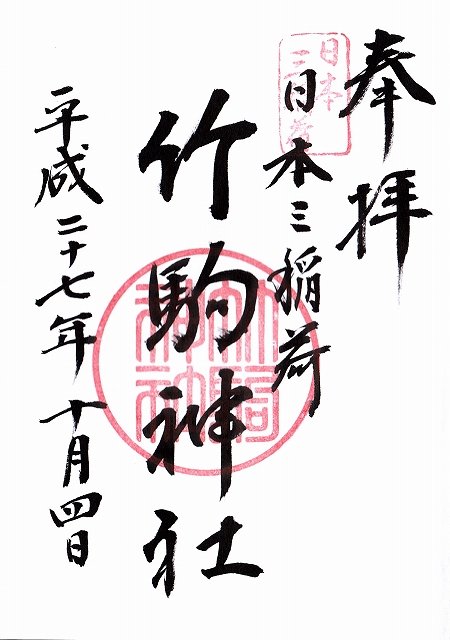 奉拝
日本三稲荷
日本三稲荷
竹駒神社
竹駒神社
平成二十七年十月四日